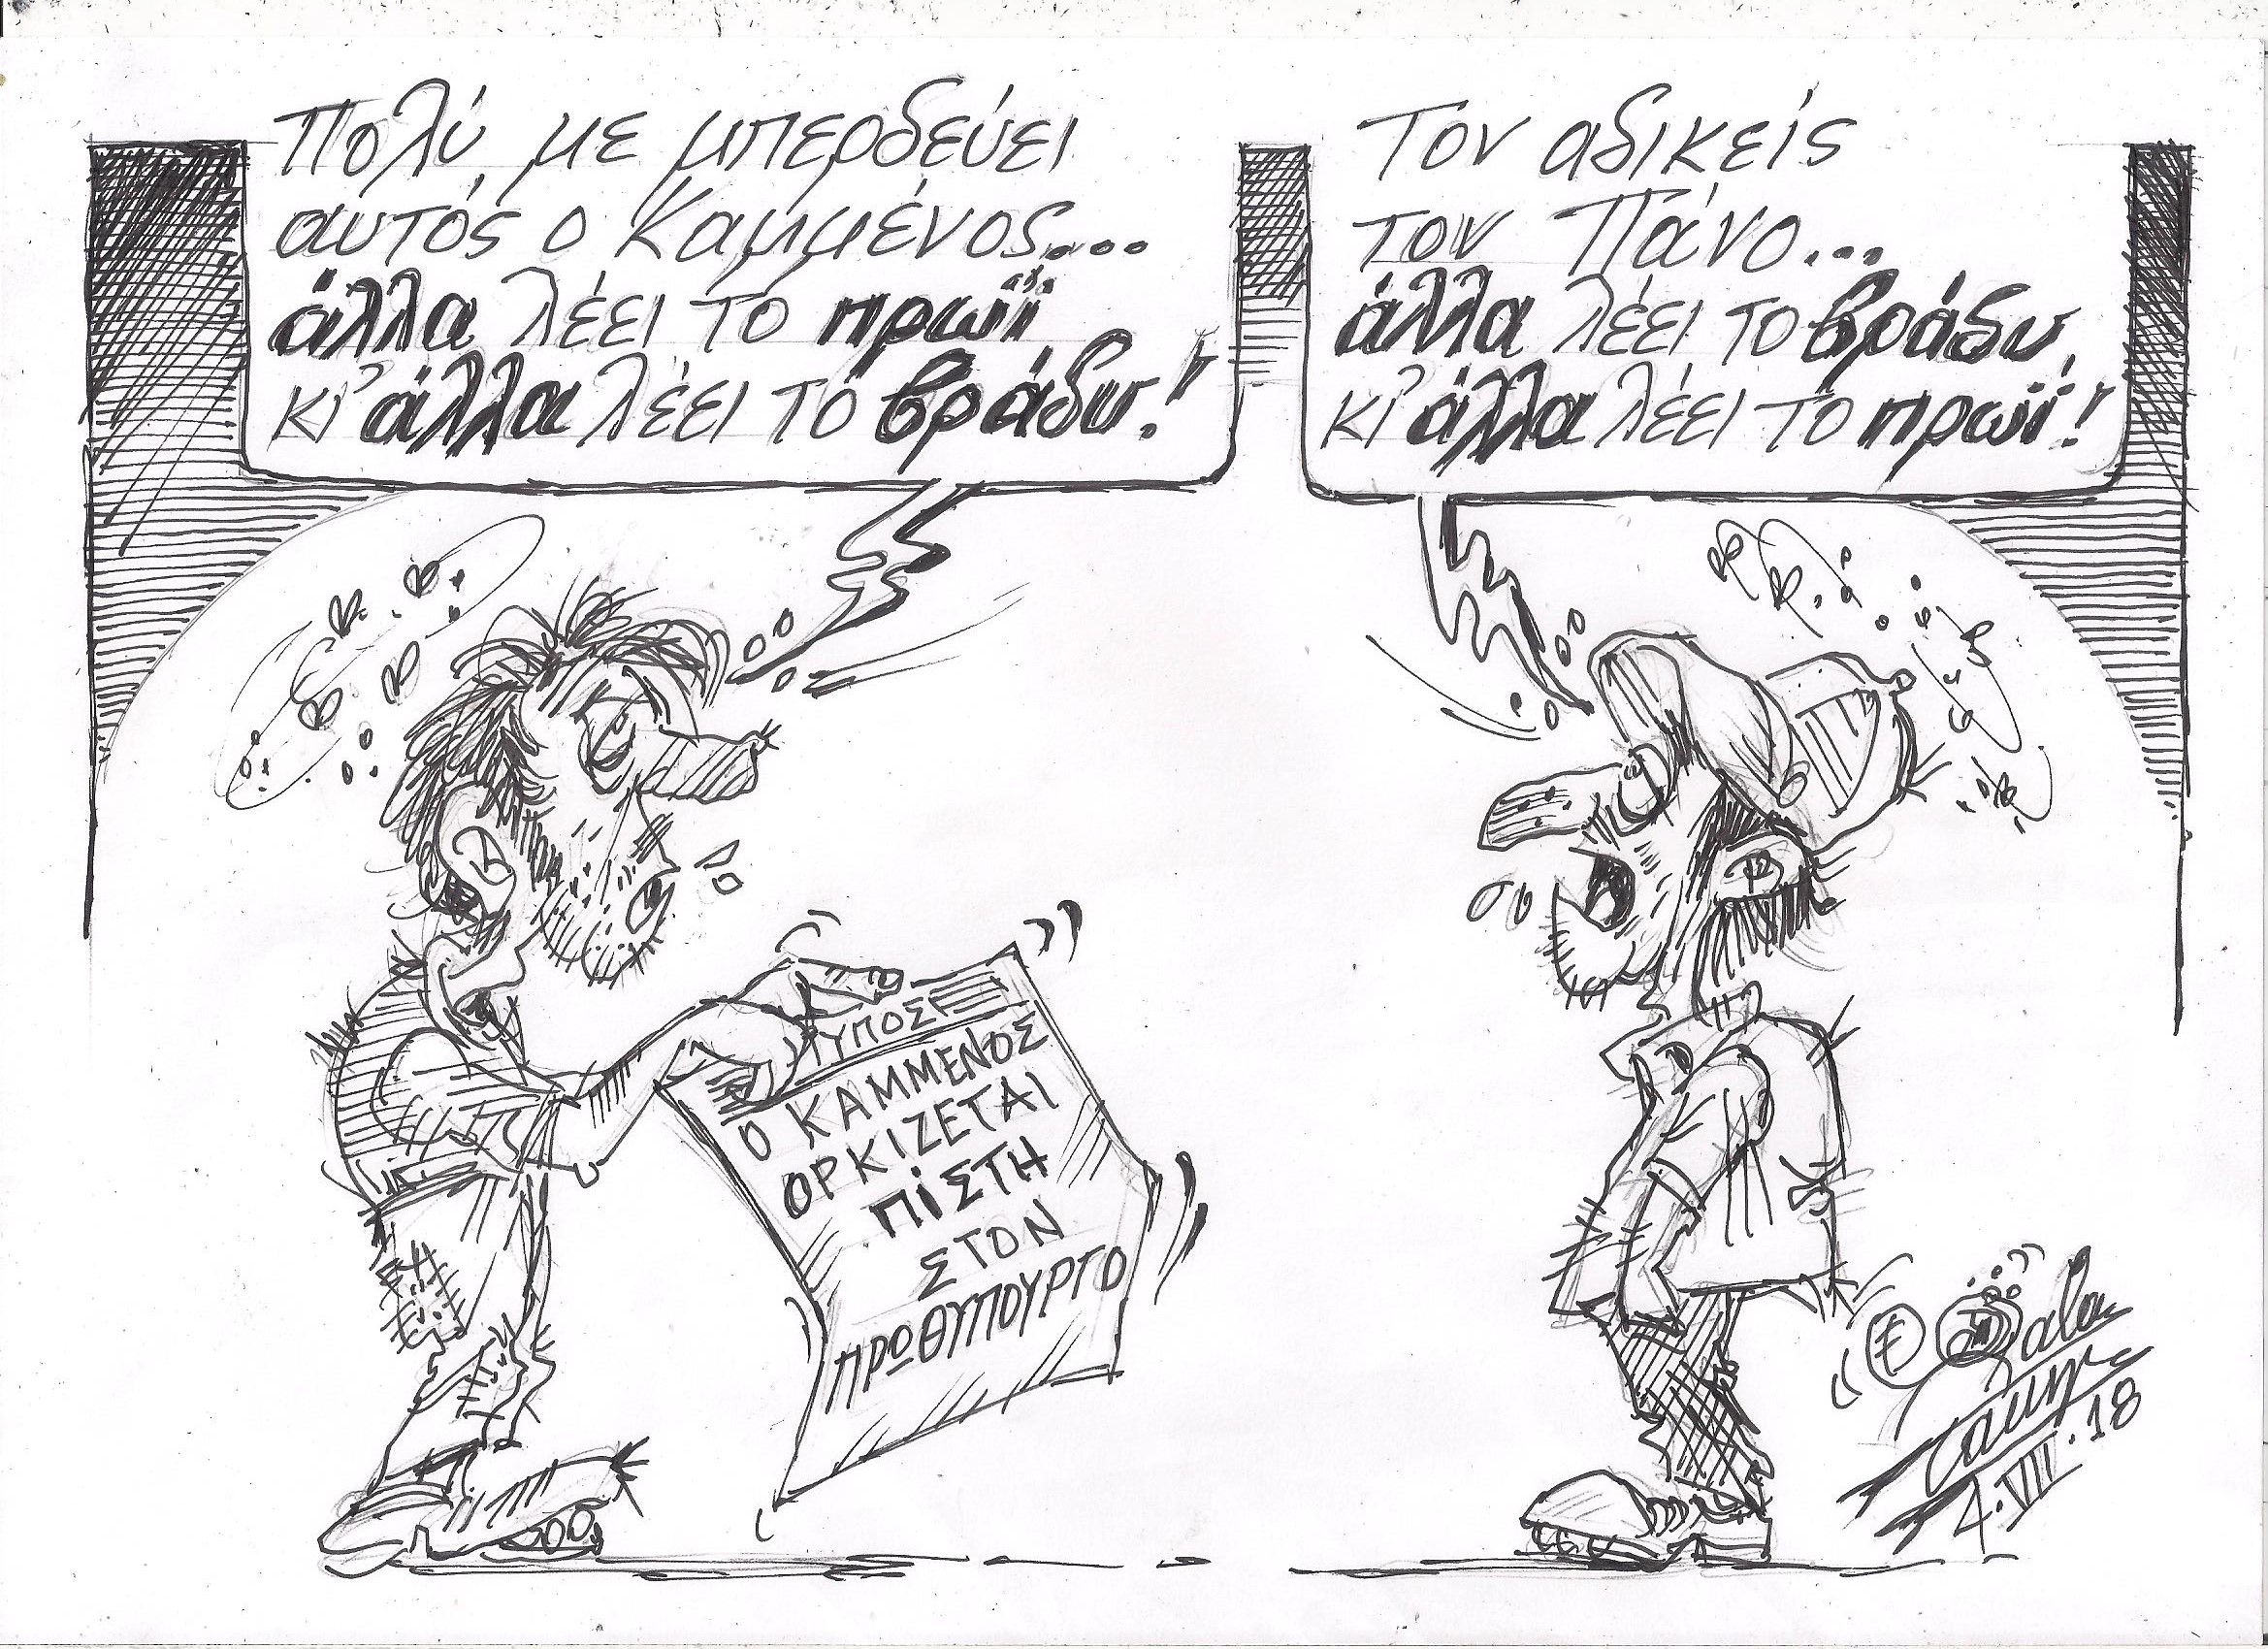 Πολύ με μπερδεύει
αυτός ο Καμμένος...
άλλα λέει το πρωΐ
κι' άλλα λέει το βράδυ!
Τον αδικείς
τον Πάνο...
άλλα λέει το βράδυ,
κι' άλλα λέει το πρωΐ!
ΤΥΠΟΣ
Ο ΚΑΜΜΕΝΟΣ
ΟΡΚΙΖΕΤΑΙ
ΠΙΣΤΗ
ΣΤΟΝ
ΠΡΩΘΥΠΟΥΡΓΟ
4.VII.18